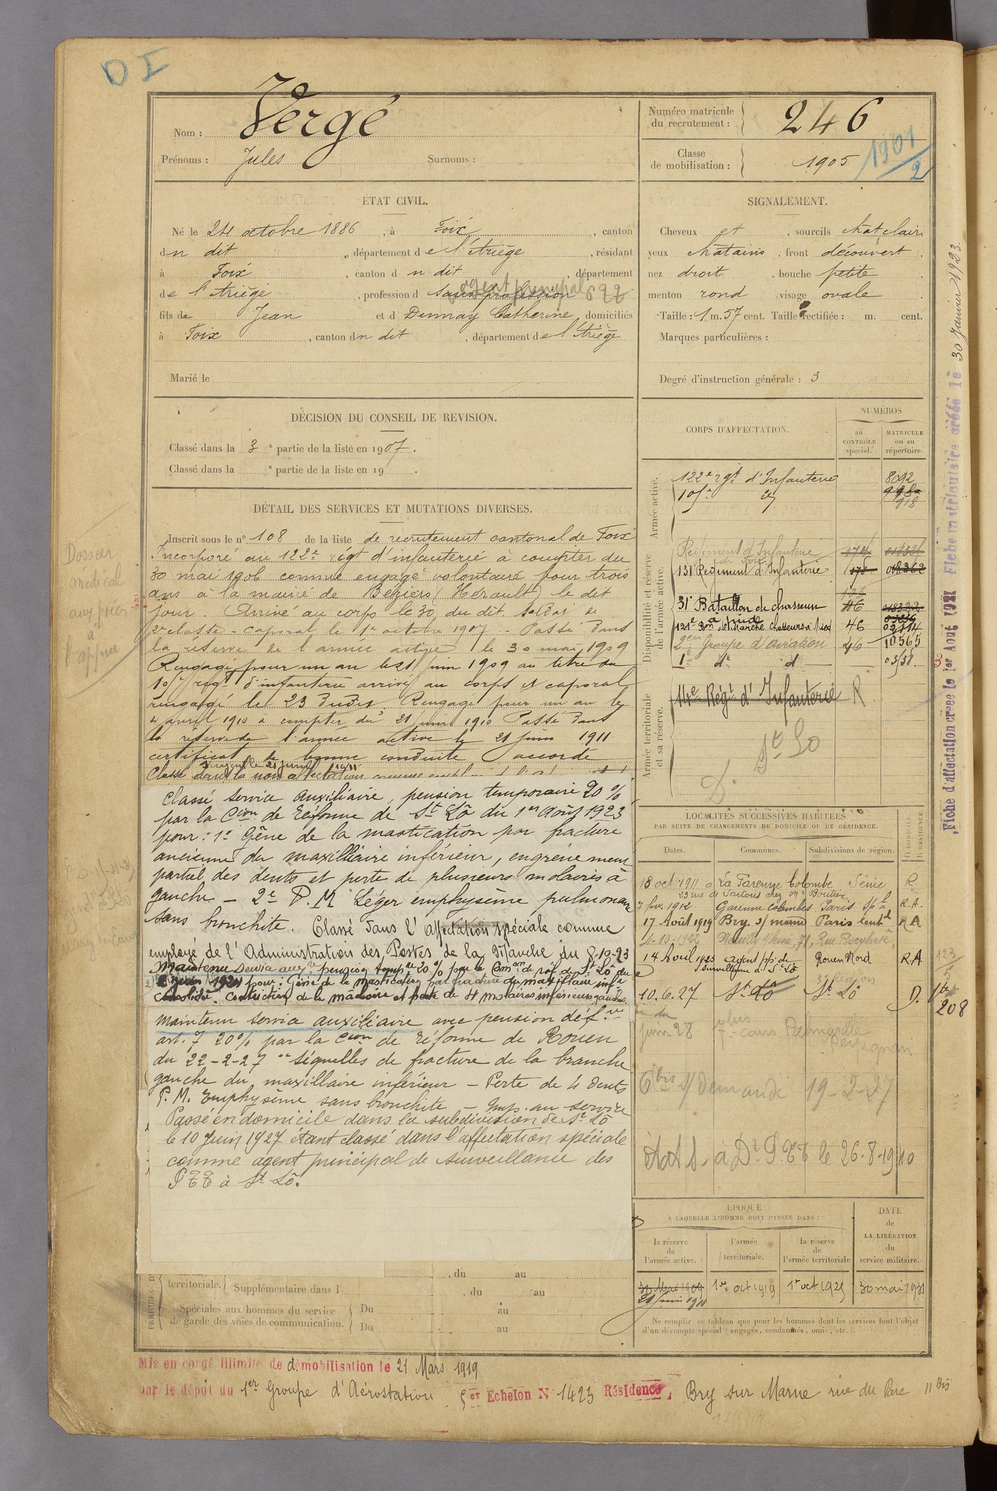 DI
Nom : Vergé
Prénoms : Jules Surnoms :
Numéro matricule du recrutement : 246
Classe de mobilisation : 1905
1901/2
ÉTAT CIVIL.
Né le 24 octobre 1886, à Foix, canton
dn dit, département de l'Ariège, résidant
à Foix, canton dn dit, département
de l'Ariège, profession d sans profession agent principal
fils de Jean et d Dunnay Catherine domiciliés
à Foix, canton dn dit, département de l'Ariège
Marié le
SIGNALEMENT.
Cheveux et, sourcils chat clair
yeux chatains, front découvert
nez droit, bouche petite
menton rond visage ovale
Taille : 1 m. 57 cent. Taille rectifiée : m. cent.
Marques particulières :
Degré d'instruction générale : 3
DÉCISION DU CONSEIL DE REVISION.
Classé dans la 3e partie de la liste en 1907.
Classé dans la e partie de la liste en 19
DÉTAIL DES SERVICES ET MUTATIONS DIVERSES.
Inscrit sous le n° 108 de la liste de recrutement cantonal de Foix
Incorporé au 122e régt d'infanterie à compter du
30 mai 1906 comme engagé volontaire pour trois
ans à la mairie de Béziers (Hérault) le dit
jour. Arrivé au corps le 30 du dit soldat de
2e classe - caporal le 1er octobre 1907 - Passé dans
la réserve de l'armée active le 30 mai 1909
Rengagé pour un an le 21 juin 1909 au titre du
régt d'infanterie arrivé au corps et caporal
rengagé le 23 dudit. Rengagé pour un an le
4 avril 1910 à compter du 21 juin 1910 Passé dans
la réserve de l'armée active le 21 juin 1911
certificat de bonne conduite accordé
Classé dans la non affectation
Classé service auxiliaire, pension temporaire 20 %
par la Cion de Réforme de St Lô du 1er Août 1923
pour : 1° Gêne de la mastication par fracture
ancienne du maxillaire inférieur, engrènement
partiel des dents et perte de plusieurs molaires à
gauche - 2° P.M. Léger emphysème pulmonaire
sans bronchite. Classé dans l'affectation spéciale comme
employé de l'Administration des Postes de la Manche du 8-10-23
Maintenu service auxre pension tempre 20 % par la Con de réf de St Lô du
1924 pour : Gêne de la mastication par fracture du maxillaire infr
consolidée. Constriction de la mâchoire et perte de 4 molaires inférieures gauches
Maintenu service auxiliaire avec pension défve
art. 7 20% par la Cion de réforme de Rouen
du 22-2-27 "Séquelles de fracture de la branche
gauche du maxillaire inférieur - Perte de 4 dents
P.M. Emphysème sans bronchite - Imp. au service
Passé en domicile dans la subdivision de St Lô
le 10 Juin 1927 étant classé dans l'affectation spéciale
comme agent principal de surveillance des
PTT à St Lô.
territoriale. Supplémentaire dans l , du au
, du au
Spéciales aux hommes du service de garde des voies de communication. Du au
Du au
CORPS D'AFFECTATION.
NUMÉROS
AU CONTRÔLE spécial.
MATRICULE ou au répertoire.
Armée active.
122e régt d'Infanterie 8092
918
Disponibilité et réserve de l'armée active.
Régiment d'Infanterie
131 Régiment d'Infanterie
31e Bataillon de chasseurs 46
46
2ème Groupe d'aviation 46 10565
1er d° d°
Armée territoriale et sa réserve.
14e Régt d'Infanterie R
D. St Lo
LOCALITÉS SUCCESSIVES HABITÉES
PAR SUITE DE CHANGEMENTS DE DOMICILE OU DE RÉSIDENCE.
Dates. Communes. Subdivisions de région. D. DOMICILE R. RÉSIDENCE
18 oct 1911 La Garenne Colombe Seine R
7 fév. 1912 Garenne Colombes R.A.
17 Août 1919 Bry s/ marne Paris R A
14 Août 1923 agent ppl de surveillance à St Lô Rouen Nord R A
10.6.27 St Lô St Lô D.
208
juin 28
19-2-27
26-8-19
ÉPOQUE
A LAQUELLE L'HOMME DOIT PASSER DANS :
la réserve de l'armée active. l'armée territoriale. la réserve de l'armée territoriale
DATE de LA LIBÉRATION du service militaire.
30 Mai 1909 21 juin 1911 1er oct 1919 1er oct 1921 30 mai 1931
Ne remplir ce tableau que pour les hommes dont les services font l'objet
d'un décompte spécial (engagés, condamnés, omis, etc.).
Mis en congé illimité de démobilisation le 21 Mars 1919
par le dépôt du 1er Groupe d'Aérostation 5e Echelon N° 1423 Résidence, Bry sur Marne rue du Parc 11 bis
Fiche d'affectation créée le 1er Août 1921 Fiche matriculaire créée le 30 Janvier 1923.